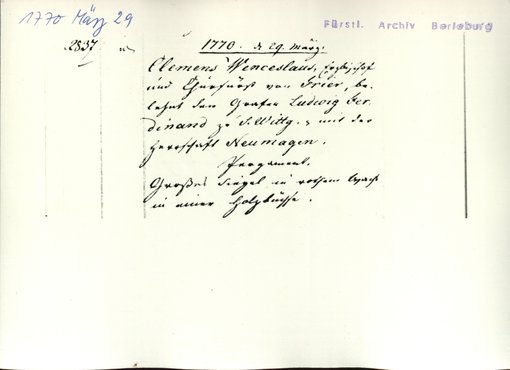 1770 März 29
Fürstl. Archiv Berleburg
2837
1770. d 29. März.
Clemens Wenceslaus, Erzbischof
und Churfürst von Trier, be-
lehnt den Grafen Ludwig Fer-
dinand zu S. Wittg. mit der
Herrschaft Neumagen.
Pergament.
Großes Siegel in rothem Wachs
in einer Holzbüchse.